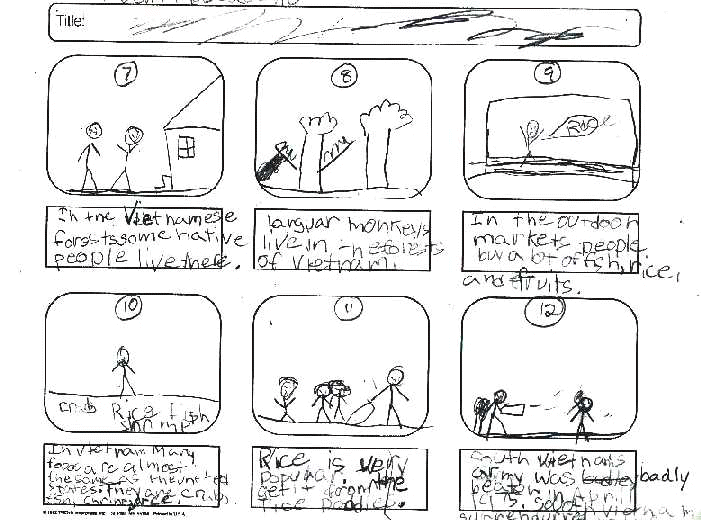 Title:
7
8
9
In the Vietnamese
forests some native
people live there.
Languar monkeys
live in the forests
of Vietnam.
In the outdoor
markets people
buy a lot of fish, rice,
and fruits.
10
11
12
crab Rice fish
shrimp
In Vietnam Many
food are almost
the same as the united
states. they are crab,
fish, rice.
Rice is very
popular.
get it from the
rice paddie.
South Vietnams
army was badly
beaten in April
South Vietnam
surrendured